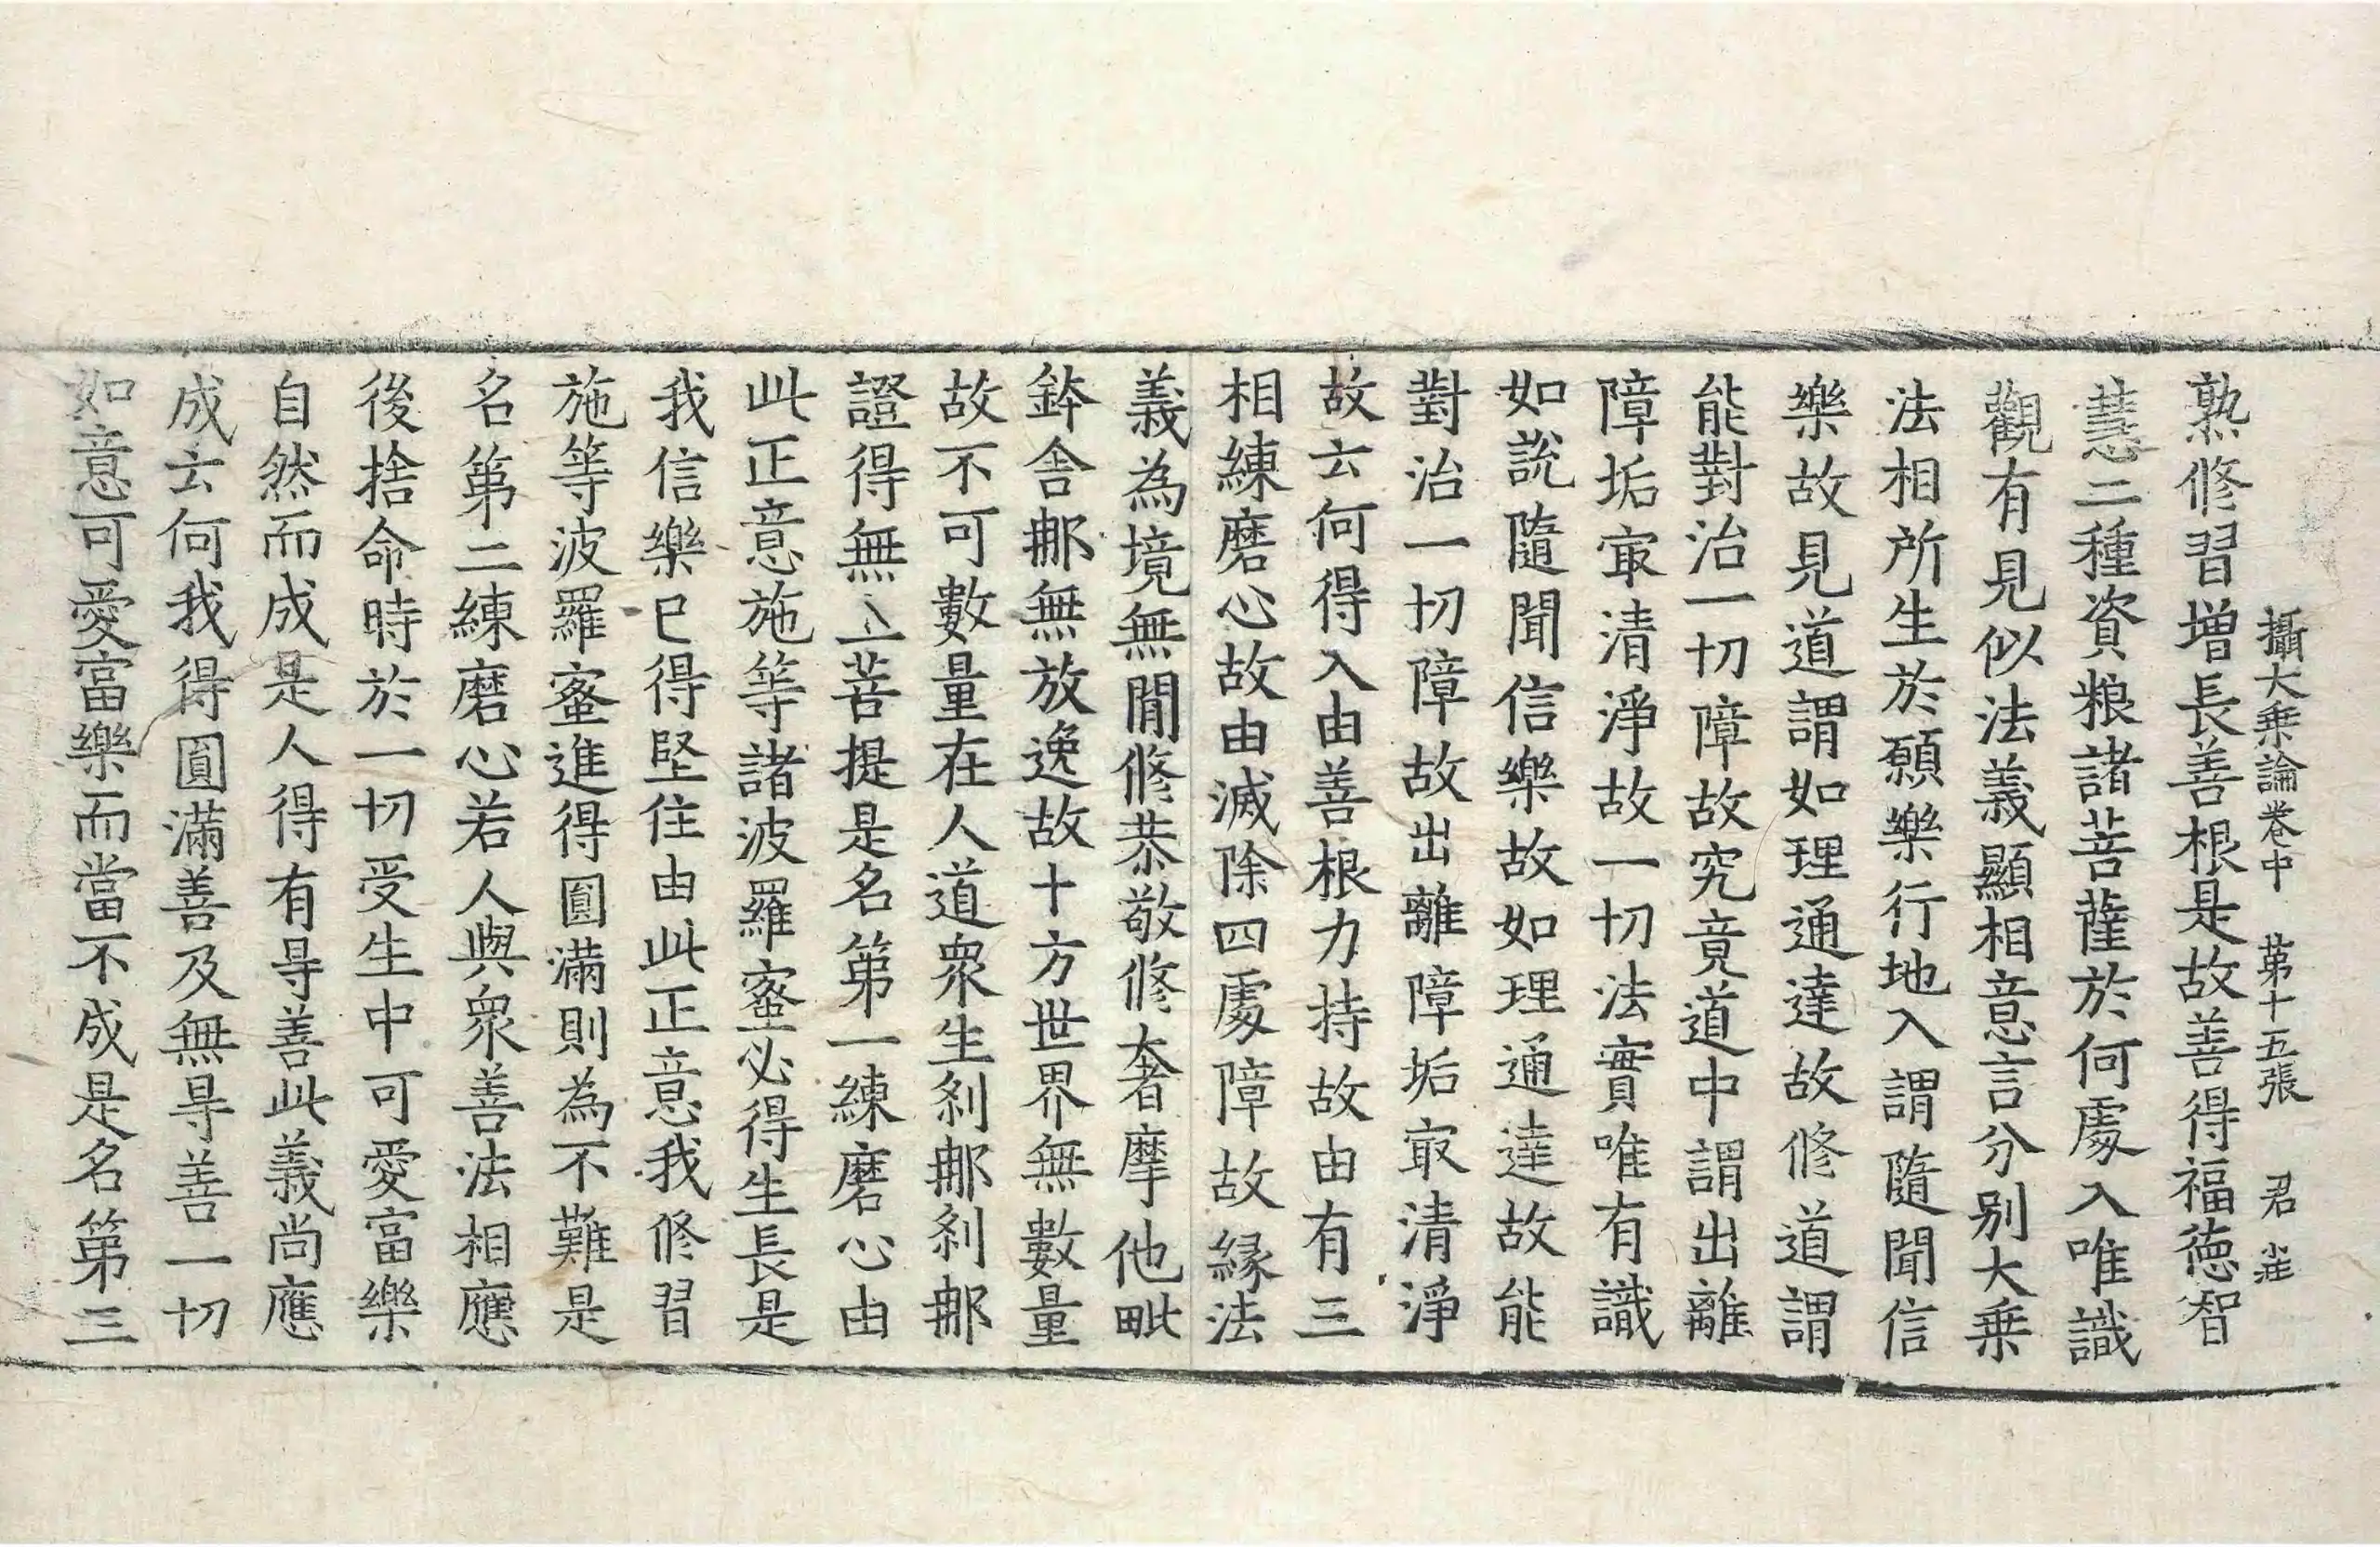 攝大乘論卷中 苐十五張 君 㽵
熟修習增長善根是故善得福德智
慧二種資粮諸菩薩於何處入唯識
觀有見似法義顯相意言分别大乗
法相所生於願樂行地入謂隨聞信
樂故見道謂如理通達故修道謂
能對治一切障故究竟道中謂出離
障垢㝡清淨故一切法實唯有識
如說隨聞信樂故如理通達故能
對治一切障故出離障垢㝡清淨
故云何得入由善根力持故由有三
相練磨心故由滅除四處障故縁法
義為境無閒修恭敬修奢摩他毗
鉢舍那無放逸故十方世界無數量
故不可數量在人道衆生刹那刹那
證得無上菩提是名第一練磨心由
此正意施等諸波羅蜜必得生長是
我信樂已得堅住由此正意我修習
施等波羅蜜進得圓滿則為不難是
名第二練磨心若人與衆善法相應
後捨命時於一切受生中可愛富樂
自然而成是人得有㝵善此義尚應
成云何我得圓滿善及無㝵善一切
如意可愛富樂而當不成是名第三